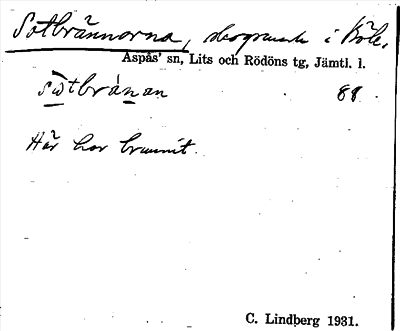 Sotbrännorna, skogsmark i Böle,
Aspås' sn, Lits och Rödöns tg, Jämtl. l.
sωtbránan 88.
Här har brunnit.
C. Lindberg 1931.